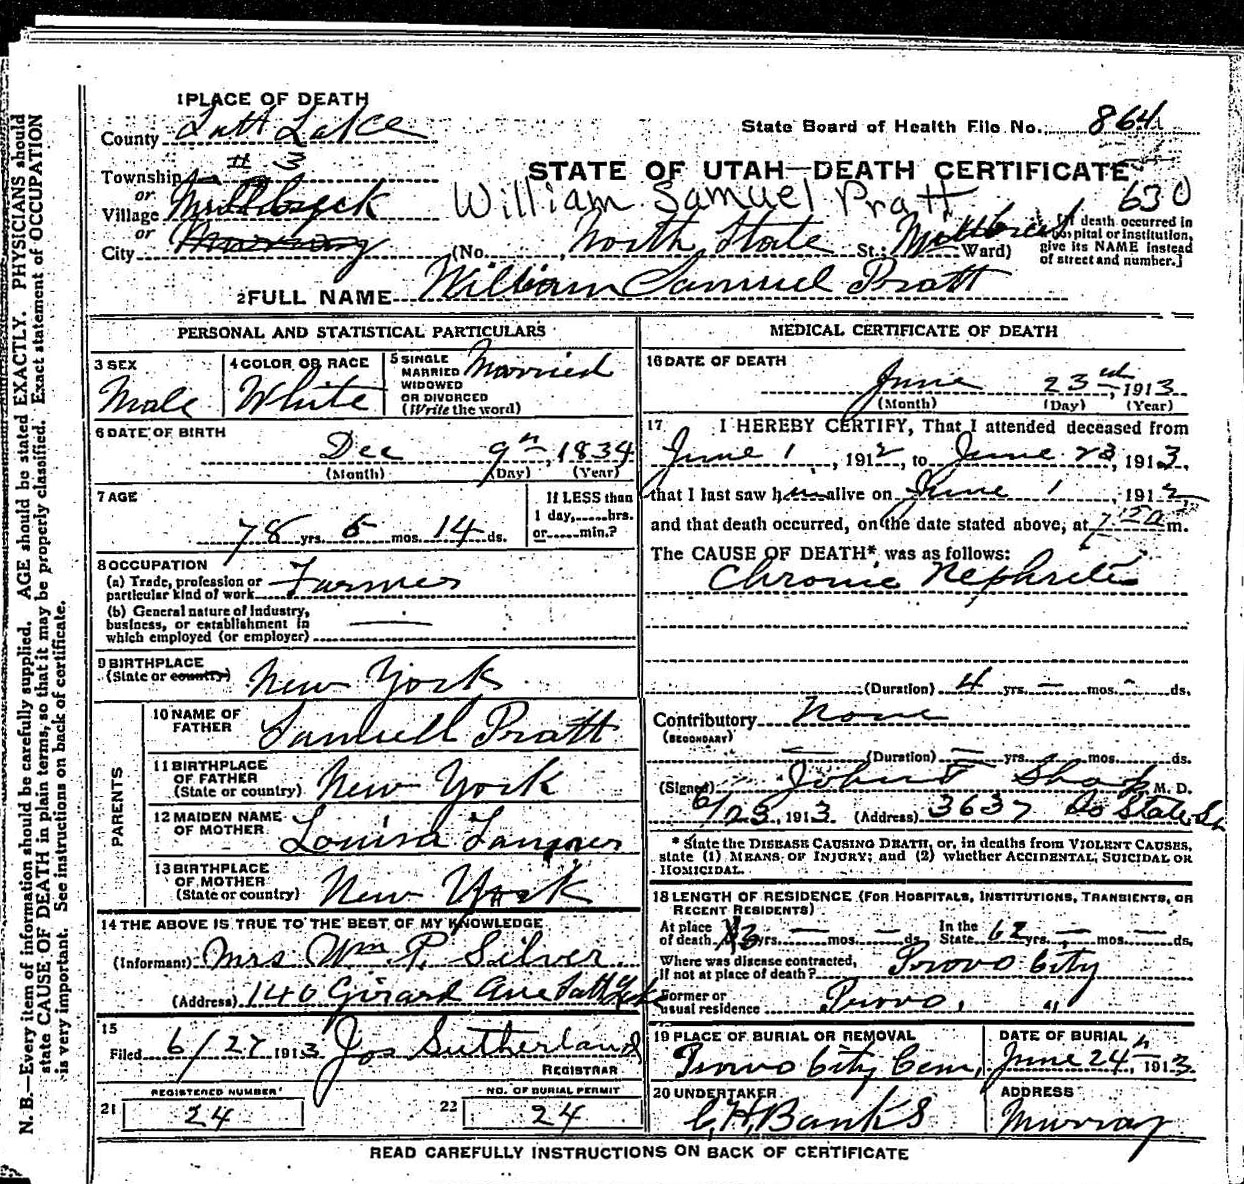 1 PLACE OF DEATH
County Salt Lake
State Board of Health File No. 864
Township # 3
STATE OF UTAH—DEATH CERTIFICATE
630
or
Village Millcreek
William Samuel Pratt
or
City Murray (No. North State St.; Millcreek Ward)
[If death occurred in
hospital or institution,
give its NAME instead
of street and number.]
2 FULL NAME William Samuel Pratt
PERSONAL AND STATISTICAL PARTICULARS
3 SEX
Male
4 COLOR OR RACE
White
5 SINGLE
MARRIED
WIDOWED
OR DIVORCED
(Write the word)
Married
6 DATE OF BIRTH
Dec 9th, 1834
(Month) (Day) (Year)
7 AGE
78 yrs. 6 mos. 14 ds.
If LESS than
1 day,......hrs.
or......min.?
8 OCCUPATION
(a) Trade, profession or
particular kind of work Farmer
(b) General nature of Industry,
business, or establishment in
which employed (or employer)
9 BIRTHPLACE
(State or country) New York
PARENTS
10 NAME OF
FATHER Samuell Pratt
11 BIRTHPLACE
OF FATHER
(State or country) New York
12 MAIDEN NAME
OF MOTHER Louisa
13 BIRTHPLACE
OF MOTHER
(State or country) New York
14 THE ABOVE IS TRUE TO THE BEST OF MY KNOWLEDGE
(Informant) Mrs Wm P. Silver
(Address) 140 Girard Ave Salt Lake
15
Filed 6/27 1913 Jos Sutherland
REGISTRAR
REGISTERED NUMBER
21 24
NO. OF BURIAL PERMIT
22 24
MEDICAL CERTIFICATE OF DEATH
16 DATE OF DEATH
June 23rd, 1913
(Month) (Day) (Year)
17 I HEREBY CERTIFY, That I attended deceased from
June 1, 1912, to June 23, 1913,
that I last saw him alive on June 1, 1912,
and that death occurred, on the date stated above, at 7 15 a m.
The CAUSE OF DEATH* was as follows:
Chronic Nephritis
(Duration) 4 yrs. — mos. - ds.
Contributory None
(SECONDARY)
(Duration) — yrs. mos. ds.
(Signed) John F Sharp M. D.
6/23, 1913 (Address) 3637 So State St
* State the DISEASE CAUSING DEATH, or, in deaths from VIOLENT CAUSES,
state (1) MEANS OF INJURY; and (2) whether ACCIDENTAL, SUICIDAL OR
HOMICIDAL.
18 LENGTH OF RESIDENCE (FOR HOSPITALS, INSTITUTIONS, TRANSIENTS, OR
RECENT RESIDENTS)
At place
of death 3 yrs. — mos. — ds. In the
State 62 yrs. - mos. — ds.
Where was disease contracted,
if not at place of death? Provo City
Former or
usual residence Provo, "
19 PLACE OF BURIAL OR REMOVAL
Provo City Cem,
DATE OF BURIAL
June 24th, 1913
20 UNDERTAKER
C, H, Banks
ADDRESS
Murray
READ CAREFULLY INSTRUCTIONS ON BACK OF CERTIFICATE
N. B.—Every item of information should be carefully supplied. AGE should be stated EXACTLY. PHYSICIANS should
state CAUSE OF DEATH in plain terms, so that it may be properly classified. Exact statement of OCCUPATION
is very important. See instructions on back of certificate.